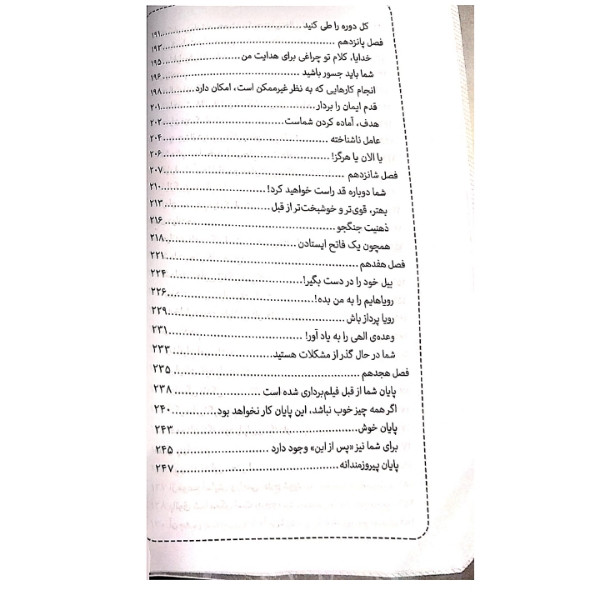 کل دوره را طی کنید ............ ۱۹۱
فصل پانزدهم ............ ۱۹۳
خدایا، کلام تو چراغی برای هدایت من ............ ۱۹۵
شما باید جسور باشید ............ ۱۹۶
انجام کارهایی که به نظر غیرممکن است، امکان دارد ............ ۱۹۸
قدم ایمان را بردار ............ ۲۰۱
هدف، آماده کردن شماست ............ ۲۰۲
عامل ناشناخته ............ ۲۰۴
یا الان یا هرگز! ............ ۲۰۶
فصل شانزدهم ............ ۲۰۷
شما دوباره قد راست خواهید کرد! ............ ۲۱۰
بهتر، قوی‌تر و خوشبخت‌تر از قبل ............ ۲۱۳
ذهنیت جنگجو ............ ۲۱۶
همچون یک فاتح ایستادن ............ ۲۱۸
فصل هفدهم ............ ۲۲۱
بیل خود را در دست بگیر! ............ ۲۲۴
رویاهایم را به من بده! ............ ۲۲۶
رویا پرداز باش ............ ۲۲۹
وعده‌ی الهی را به یاد آور! ............ ۲۳۱
شما در حال گذر از مشکلات هستید ............ ۲۳۳
فصل هجدهم ............ ۲۳۵
پایان شما از قبل فیلم‌برداری شده است ............ ۲۳۸
اگر همه چیز خوب نباشد، این پایان کار نخواهد بود ............ ۲۴۰
پایان خوش ............ ۲۴۳
برای شما نیز «پس از این» وجود دارد ............ ۲۴۵
پایان پیروزمندانه ............ ۲۴۷